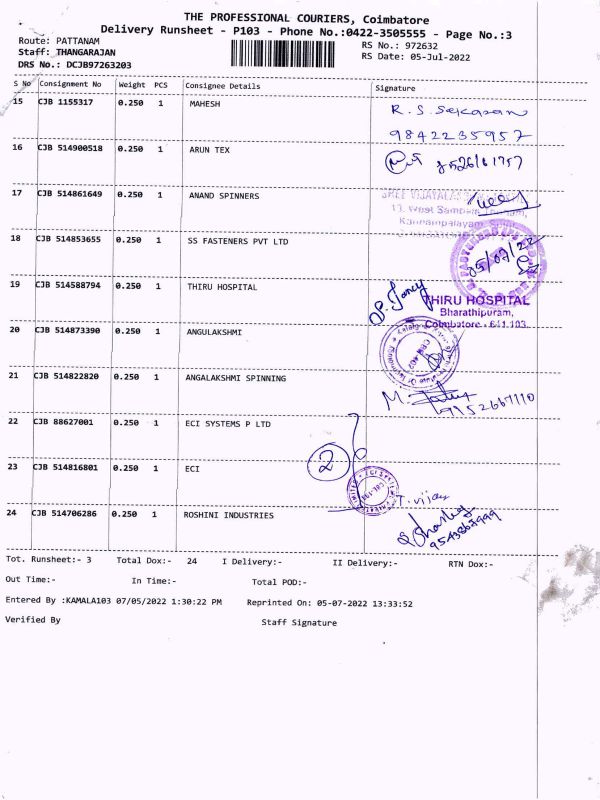 THE PROFESSIONAL COURIERS, Coimbatore
Delivery Runsheet - P103 - Phone No.:0422-3505555 - Page No.:3
Route: PATTANAM
RS No.: 972632
Staff: THANGARAJAN
RS Date: 05-Jul-2022
DRS No.: DCJB97263203
S No Consignment No Weight PCS Consignee Details Signature
15 CJB 1155317 0.250 1 MAHESH R. S. Sekaran
9842235957
16 CJB 514900518 0.250 1 ARUN TEX
17 CJB 514861649 0.250 1 ANAND SPINNERS
18 CJB 514853655 0.250 1 SS FASTENERS PVT LTD 05/07/22
19 CJB 514588794 0.250 1 THIRU HOSPITAL
THIRU HOSPITAL
Bharathipuram,
Coimbatore - 641 103.
20 CJB 514873390 0.250 1 ANGULAKSHMI
21 CJB 514822820 0.250 1 ANGALAKSHMI SPINNING
22 CJB 88627001 0.250 1 ECI SYSTEMS P LTD
2
23 CJB 514816801 0.250 1 ECI
T. vijay
24 CJB 514706286 0.250 1 ROSHINI INDUSTRIES
Tot. Runsheet:- 3 Total Dox:- 24 I Delivery:- II Delivery:- RTN Dox:-
Out Time:- In Time:- Total POD:-
Entered By :KAMALA103 07/05/2022 1:30:22 PM Reprinted On: 05-07-2022 13:33:52
Verified By Staff Signature